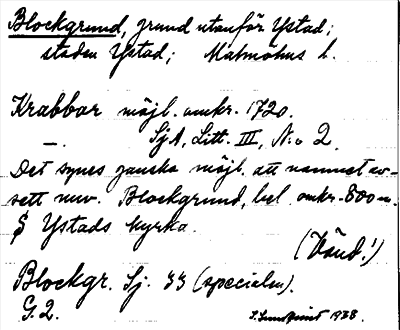 Blockgrund, grund utanför Ystad;
staden Ystad; Malmöhus l.
Krabbar möjl. omkr. 1720.
—. SjA, Litt. III, N:o 2.
Det synes ganska möjl. att namnet av-
sett nuv. Blockgrund, bel. omkr. 800 m.
S Ystads kyrka.
(Vänd!)
Blockgr. Sj. 33 (specialen).
G. 2.
1938